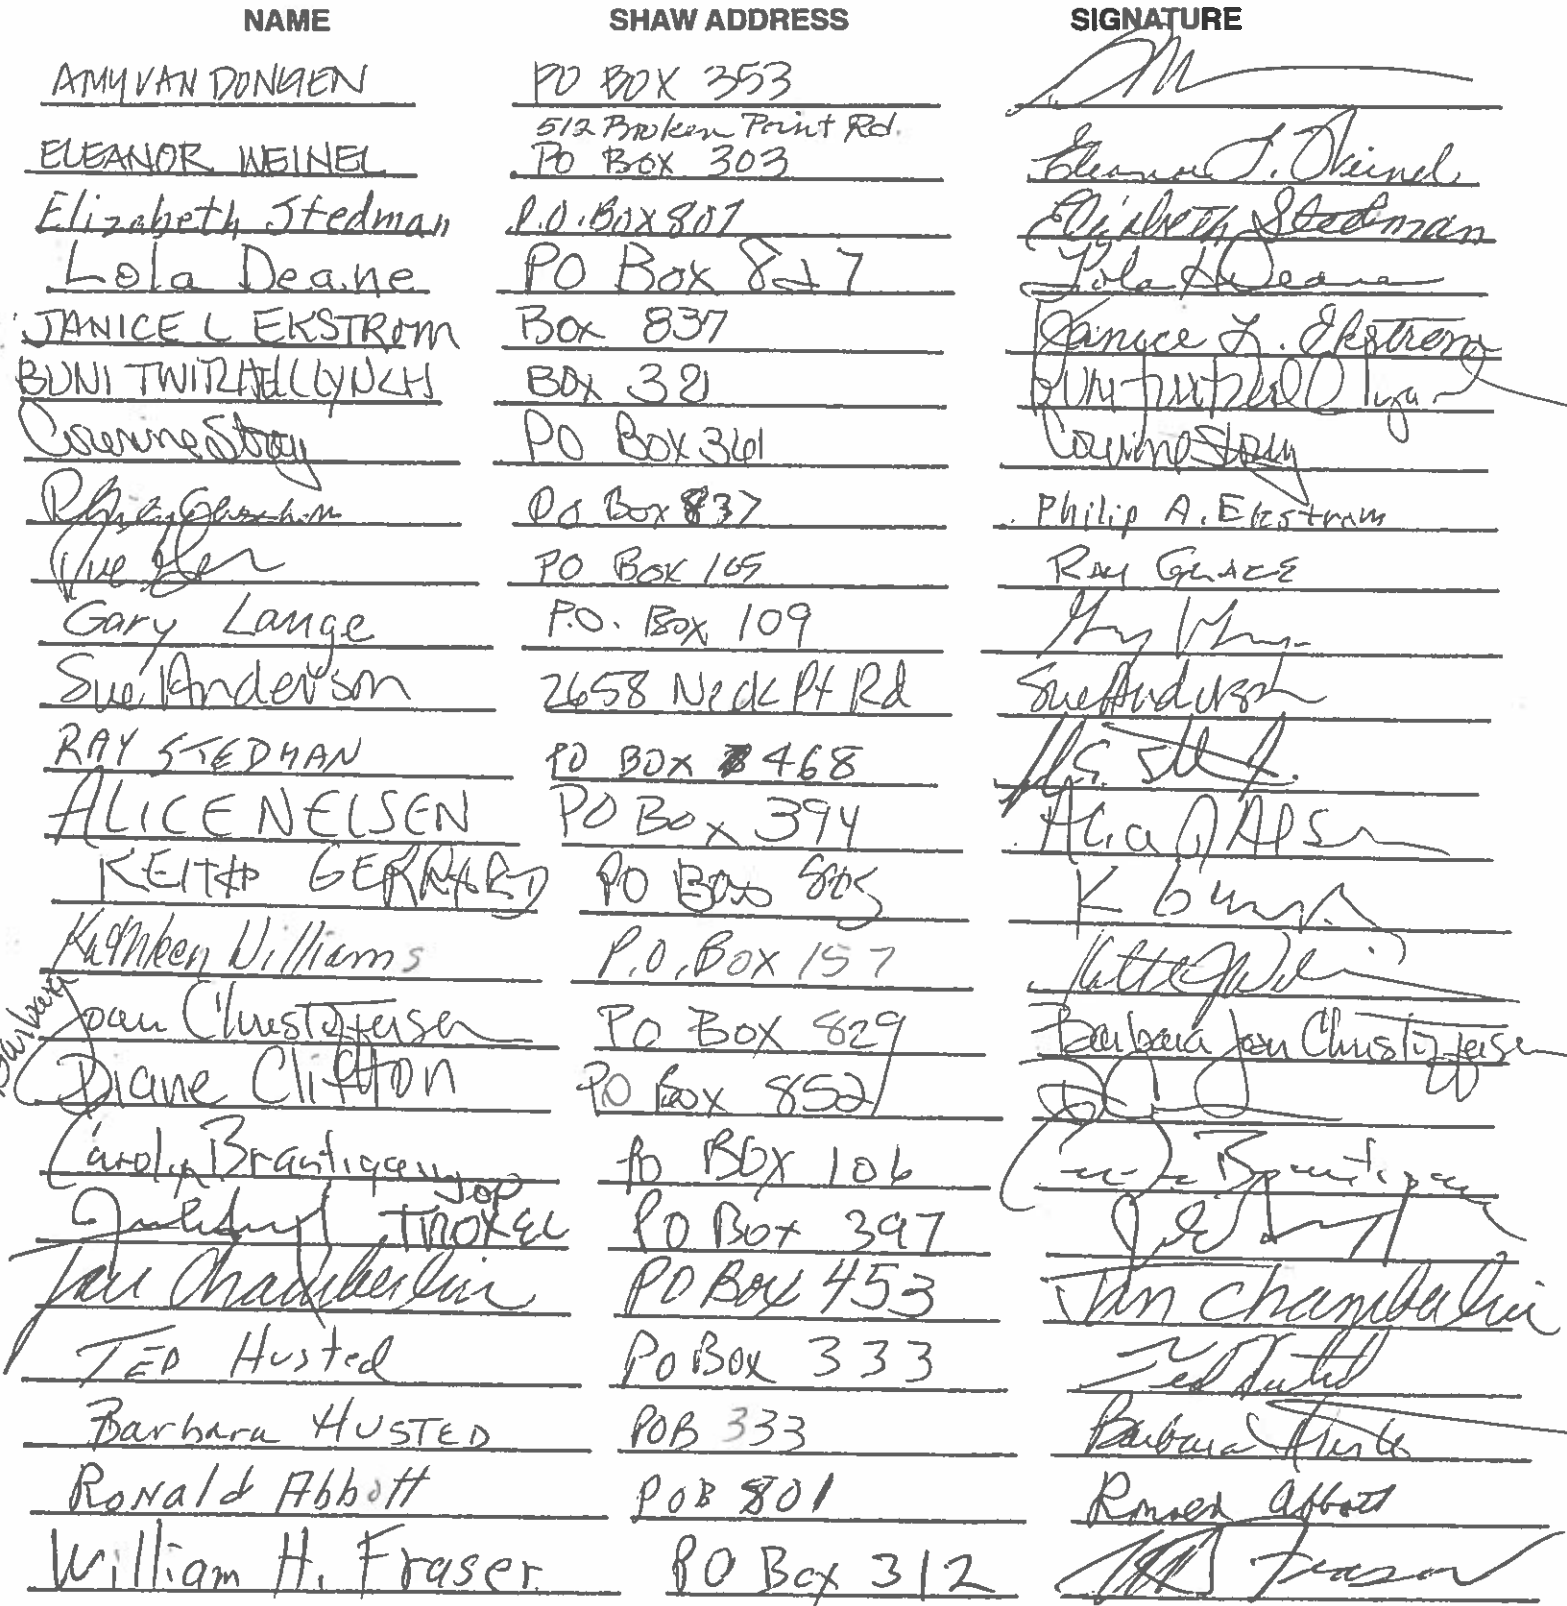 NAME SHAW ADDRESS SIGNATURE
AMY VAN DONGEN PO BOX 353
512 Broken Point Rd.
ELEANOR WEINEL PO BOX 303 Eleanor J. Weinel
Elizabeth Stedman P.O. Box 807 Elizabeth Stedman
Lola Deane PO Box 827 Lola Deane
JANICE L EKSTROM Box 837 Janice L. Ekstrom
BUNI TWITCHELL LYNCH BOX 321
Corrine Story PO Box 361 Corrine Story
PO Box 837 Philip A. Ekstrom
PO Box 165 RAY GLACE
Gary Lange P.O. Box 109
Sue Anderson 2658 Neck Pt Rd Sue Anderson
RAY STEDMAN PO BOX 468
ALICE NELSEN PO Box 394
KEITH GERRARD PO Box 805 K
Kathleen Williams P.O. Box 157
Barbara
Joan Christoffersen PO Box 829 Barbara Joan Christoffersen
Diane Clifton PO Box 852
Carolyn Brantigan PO BOX 106
Jop
TROXEL PO Box 397
Jan Chamberlin PO Box 453 Jan Chamberlin
TED Husted PO Box 333 Ted Husted
Barbara HUSTED POB 333 Barbara Husted
Ronald Abbott POB 801 Ronald Abbott
William H. Fraser PO Box 312 Fraser